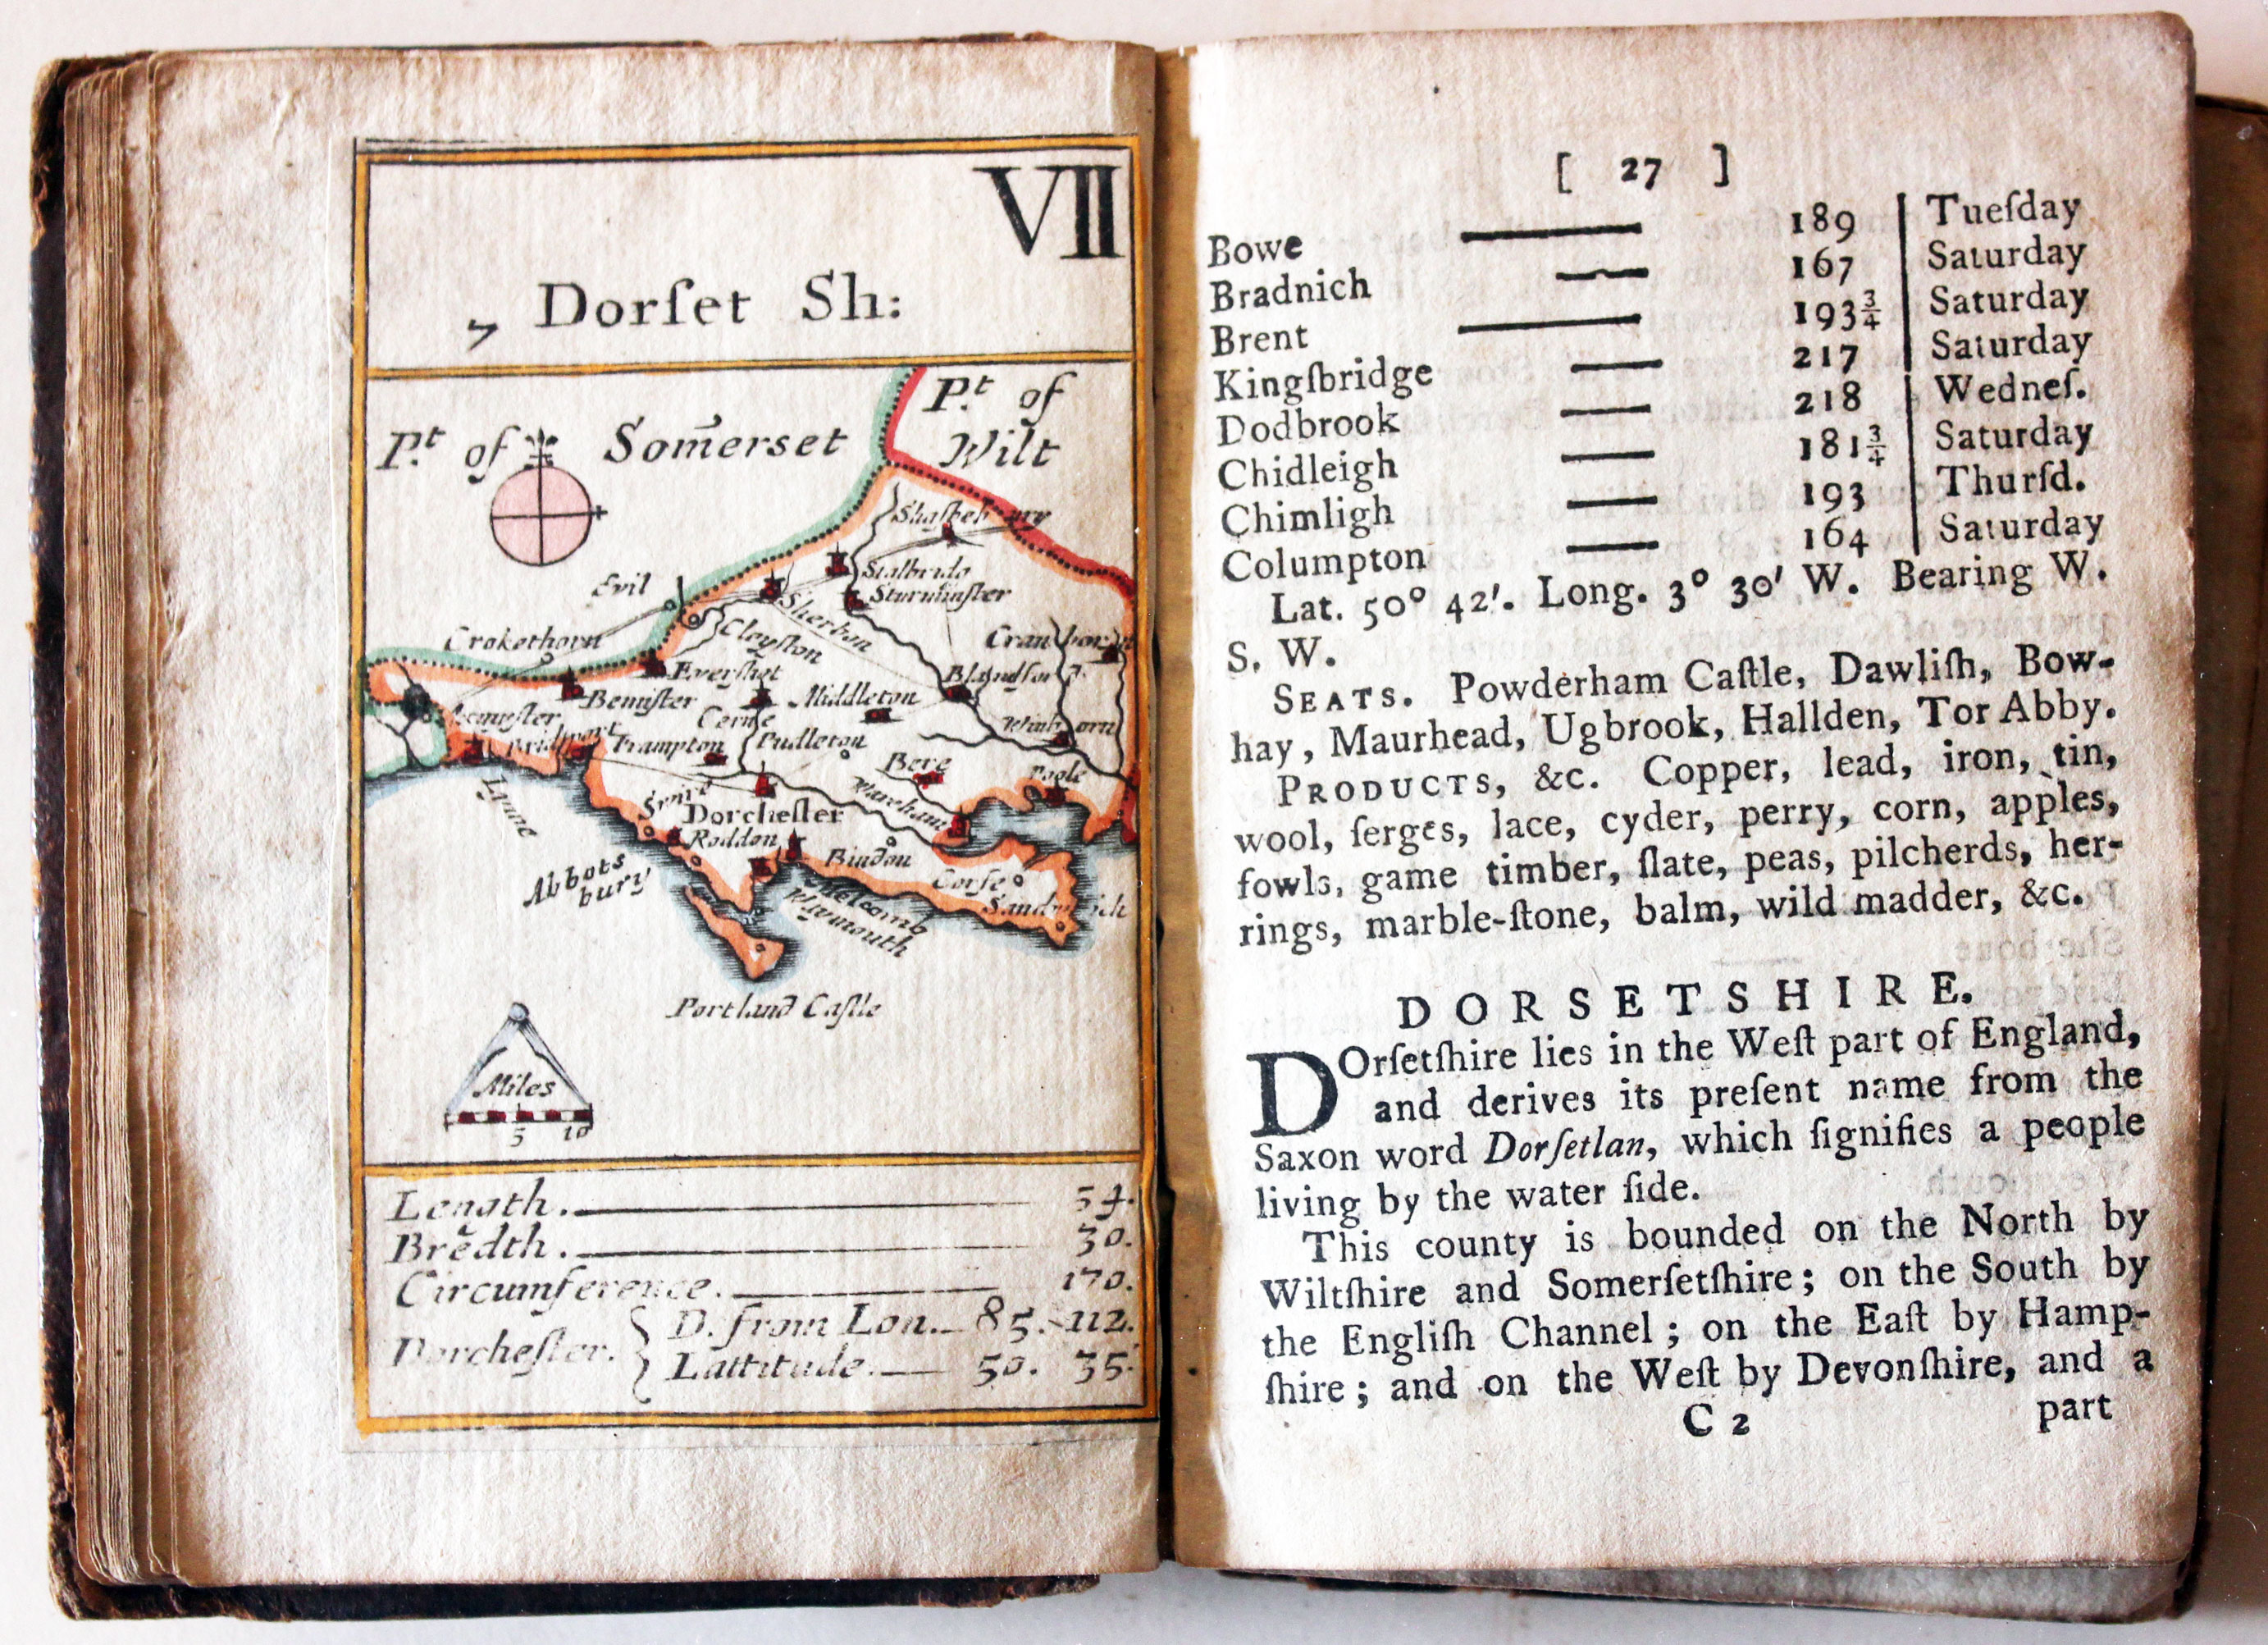 VII
7 Dorſet Sh:
P.t of Somerset
P.t of
Wilt
Evil
Stalbridg
Sturminſter
Sherban
Cleyſton
Crokethorn
Everſhot
Bemiſter
Middleton
Cerne
Frampton
Pudleton
Bere
Poole
Wareham
Lyme
Dorcheſter
Roddon
Bindon
Abbots
bury
Corfe
Portland Caſtle
Miles
5 10
Length. 54.
Brĕdth. 30.
Circumference. 170.
Dorcheſter. D. from Lon. 85. 112.
Lattitude. 50. 35.
[ 27 ]
Bowe 189 Tueſday
Bradnich 167 Saturday
Brent 193¾ Saturday
Kingſbridge 217 Saturday
Dodbrook 218 Wedneſ.
Chidleigh 181¾ Saturday
Chimligh 193 Thurſd.
Columpton 164 Saturday
Lat. 50° 42'. Long. 3° 30' W. Bearing W.
S. W.
SEATS. Powderham Caſtle, Dawliſh, Bow-
hay, Maurhead, Ugbrook, Hallden, Tor Abby.
PRODUCTS, &c. Copper, lead, iron, tin,
wool, ſerges, lace, cyder, perry, corn, apples,
fowls, game timber, ſlate, peas, pilcherds, her-
rings, marble-ſtone, balm, wild madder, &c.
DORSETSHIRE.
DOrſetſhire lies in the Weſt part of England,
and derives its preſent name from the
Saxon word Dorſetlan, which ſignifies a people
living by the water ſide.
This county is bounded on the North by
Wiltſhire and Somerſetſhire; on the South by
the Engliſh Channel; on the Eaſt by Hamp-
ſhire; and on the Weſt by Devonſhire, and a
C 2 part